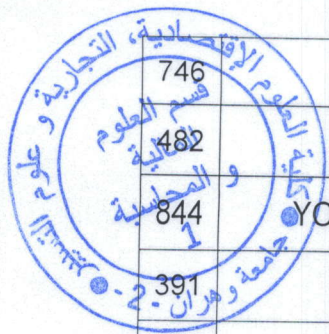 كلية العلوم الإقتصادية، التجارية و علوم التسيير
جامعة وهران -2-
قسم العلوم
المالية
و المحاسبة
1
746
482
844 YO
391